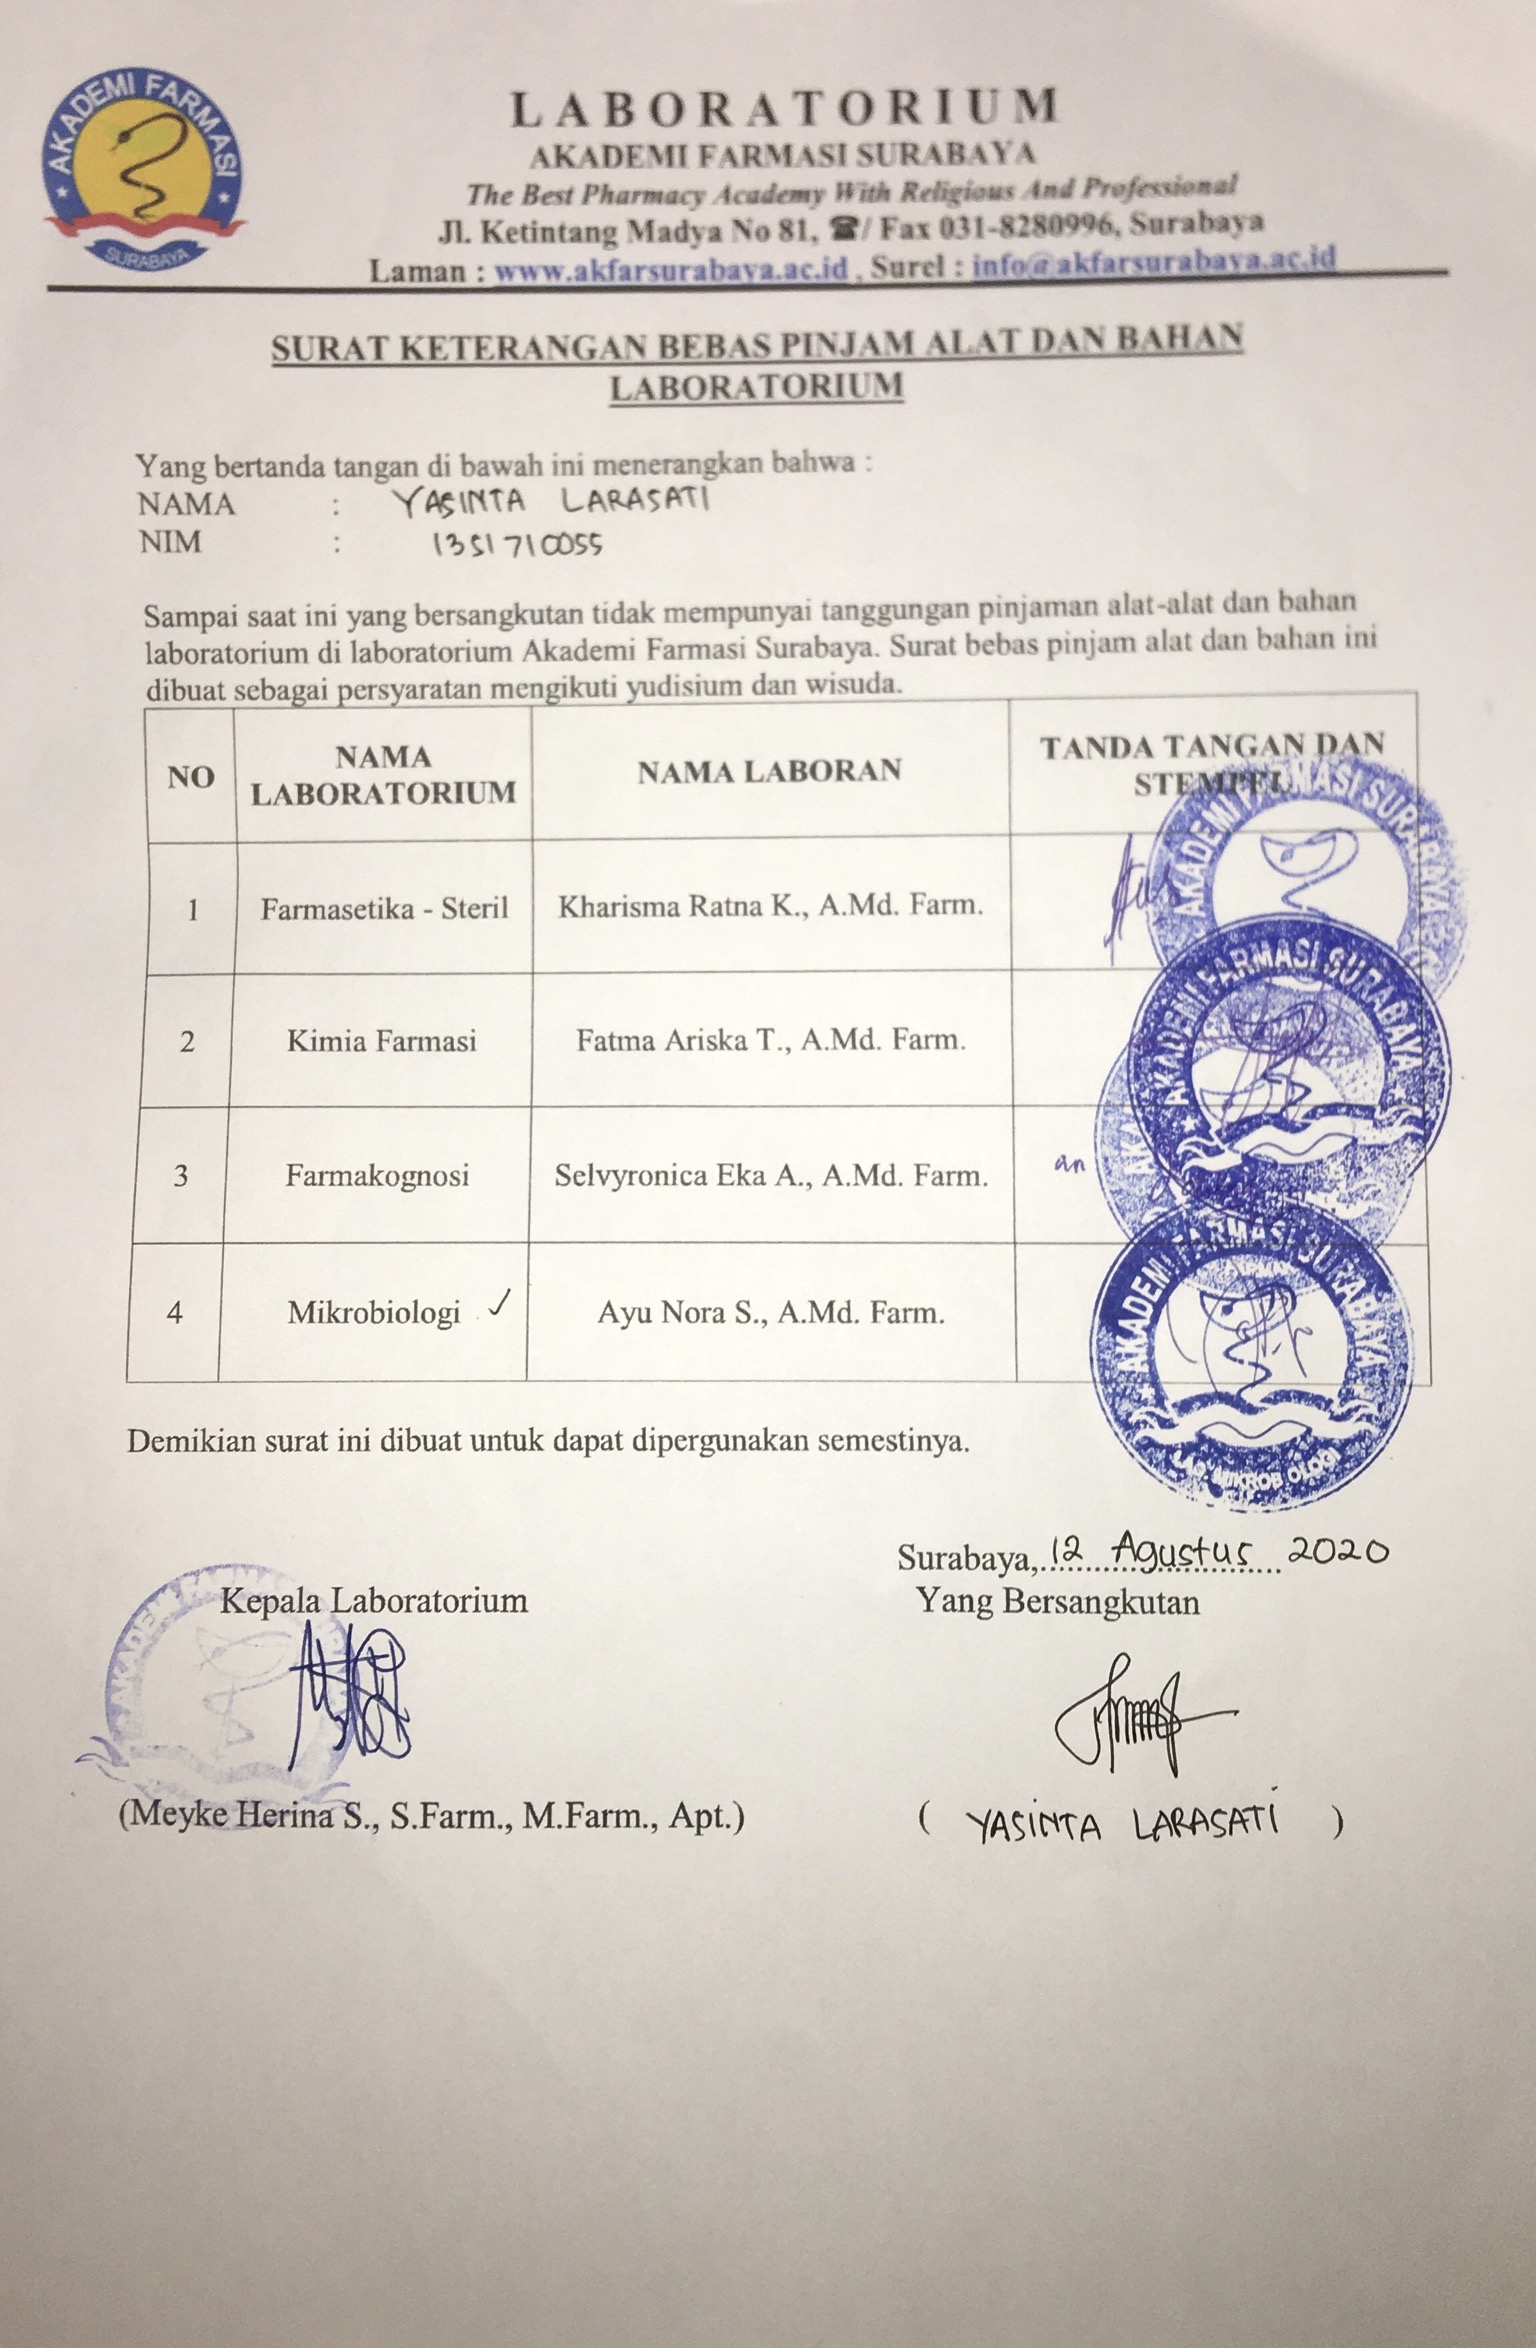 AKADEMI FARMASI
SURABAYA
LABORATORIUM
AKADEMI FARMASI SURABAYA
The Best Pharmacy Academy With Religious And Professional
Jl. Ketintang Madya No 81, ☎/ Fax 031-8280996, Surabaya
Laman : www.akfarsurabaya.ac.id , Surel : info@akfarsurabaya.ac.id
SURAT KETERANGAN BEBAS PINJAM ALAT DAN BAHAN
LABORATORIUM
Yang bertanda tangan di bawah ini menerangkan bahwa :
NAMA : YASINTA LARASATI
NIM : 1351710055
Sampai saat ini yang bersangkutan tidak mempunyai tanggungan pinjaman alat-alat dan bahan
laboratorium di laboratorium Akademi Farmasi Surabaya. Surat bebas pinjam alat dan bahan ini
dibuat sebagai persyaratan mengikuti yudisium dan wisuda.
NO NAMA LABORATORIUM NAMA LABORAN TANDA TANGAN DAN STEMPEL
1 Farmasetika - Steril Kharisma Ratna K., A.Md. Farm.
AKADEMI FARMASI SURABAYA
2 Kimia Farmasi Fatma Ariska T., A.Md. Farm.
AKADEMI FARMASI SURABAYA
3 Farmakognosi Selvyronica Eka A., A.Md. Farm. an
4 Mikrobiologi ✓ Ayu Nora S., A.Md. Farm.
AKADEMI FARMASI SURABAYA
LAB. MIKROBIOLOGI
Demikian surat ini dibuat untuk dapat dipergunakan semestinya.
Surabaya, 12 Agustus 2020
Kepala Laboratorium Yang Bersangkutan
(Meyke Herina S., S.Farm., M.Farm., Apt.) ( YASINTA LARASATI )